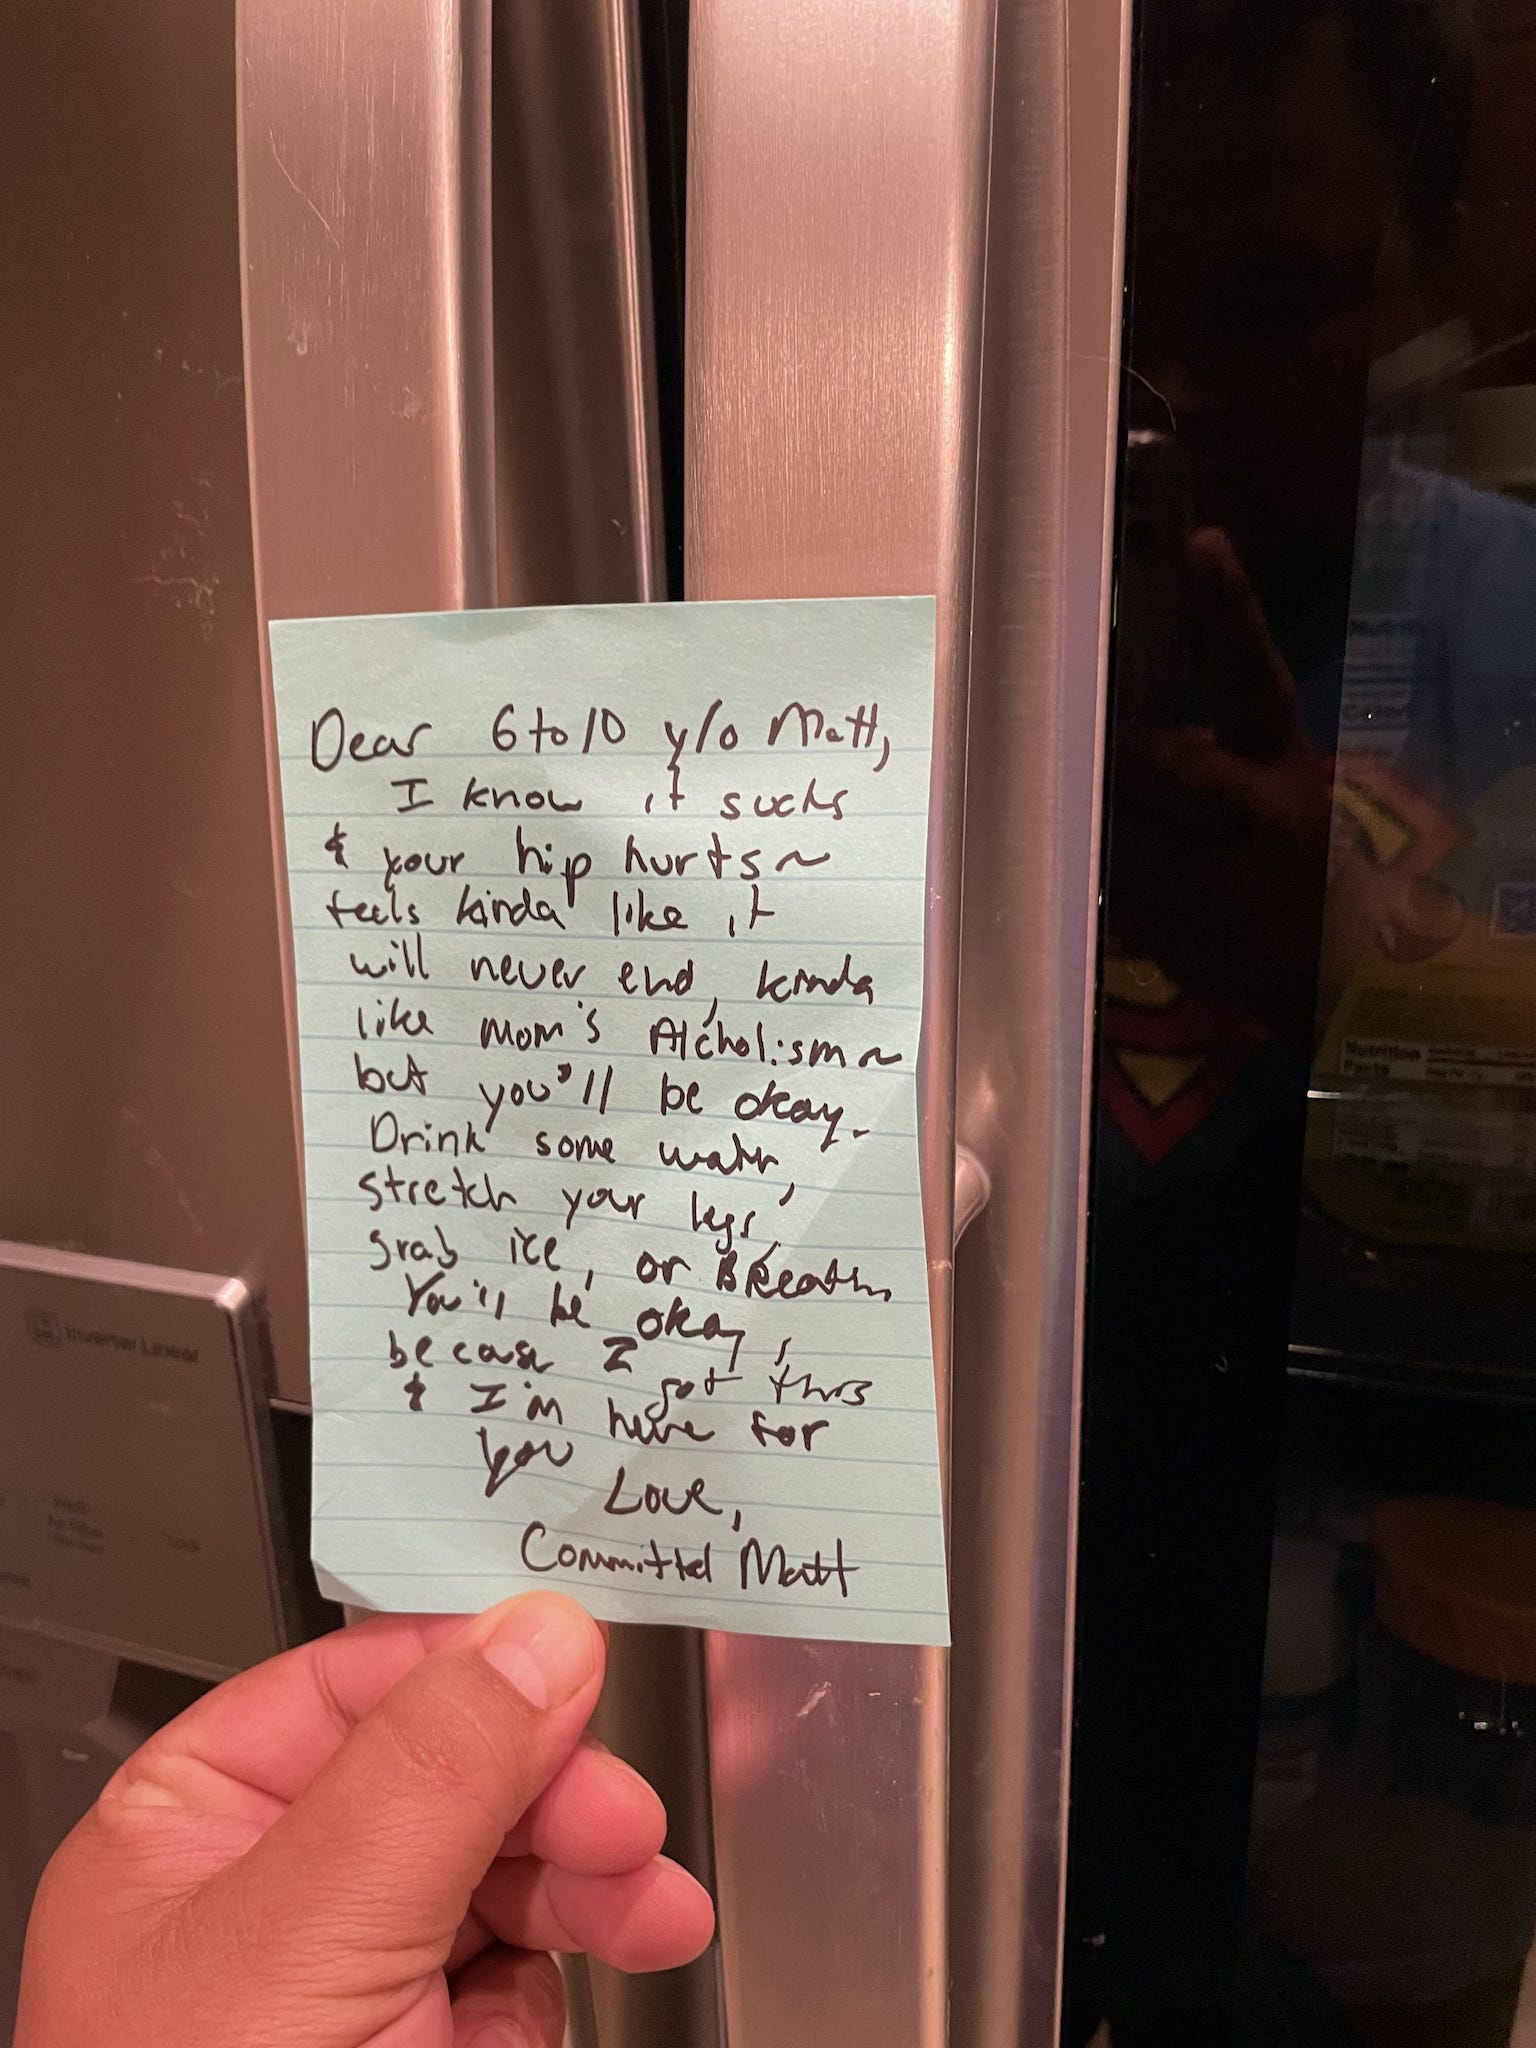 Dear 6 to 10 y/o Matt,
I know it sucks
& your hip hurts ~
feels kinda like it
will never end, kinda
like mom's Alcholism ~
but you'll be okay.
Drink some water,
stretch your legs,
grab ice, or BReathe
You'll be okay,
because I got this
& I'm here for
you
Love,
Committed Matt
Inverter Linear
Nutrition
Facts